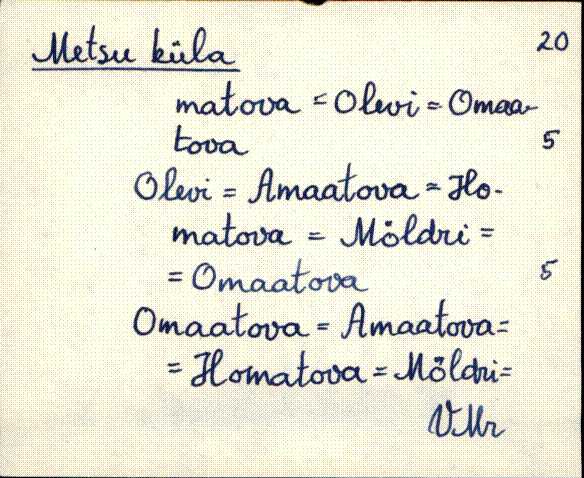 Metsu küla 20
matova = Olevi = Omaa-
tova 5
Olevi = Amaatova = Ho-
matova = Möldri =
= Omaatova 5
Omaatova = Amaatova =
= Homatova = Möldri =
VMr